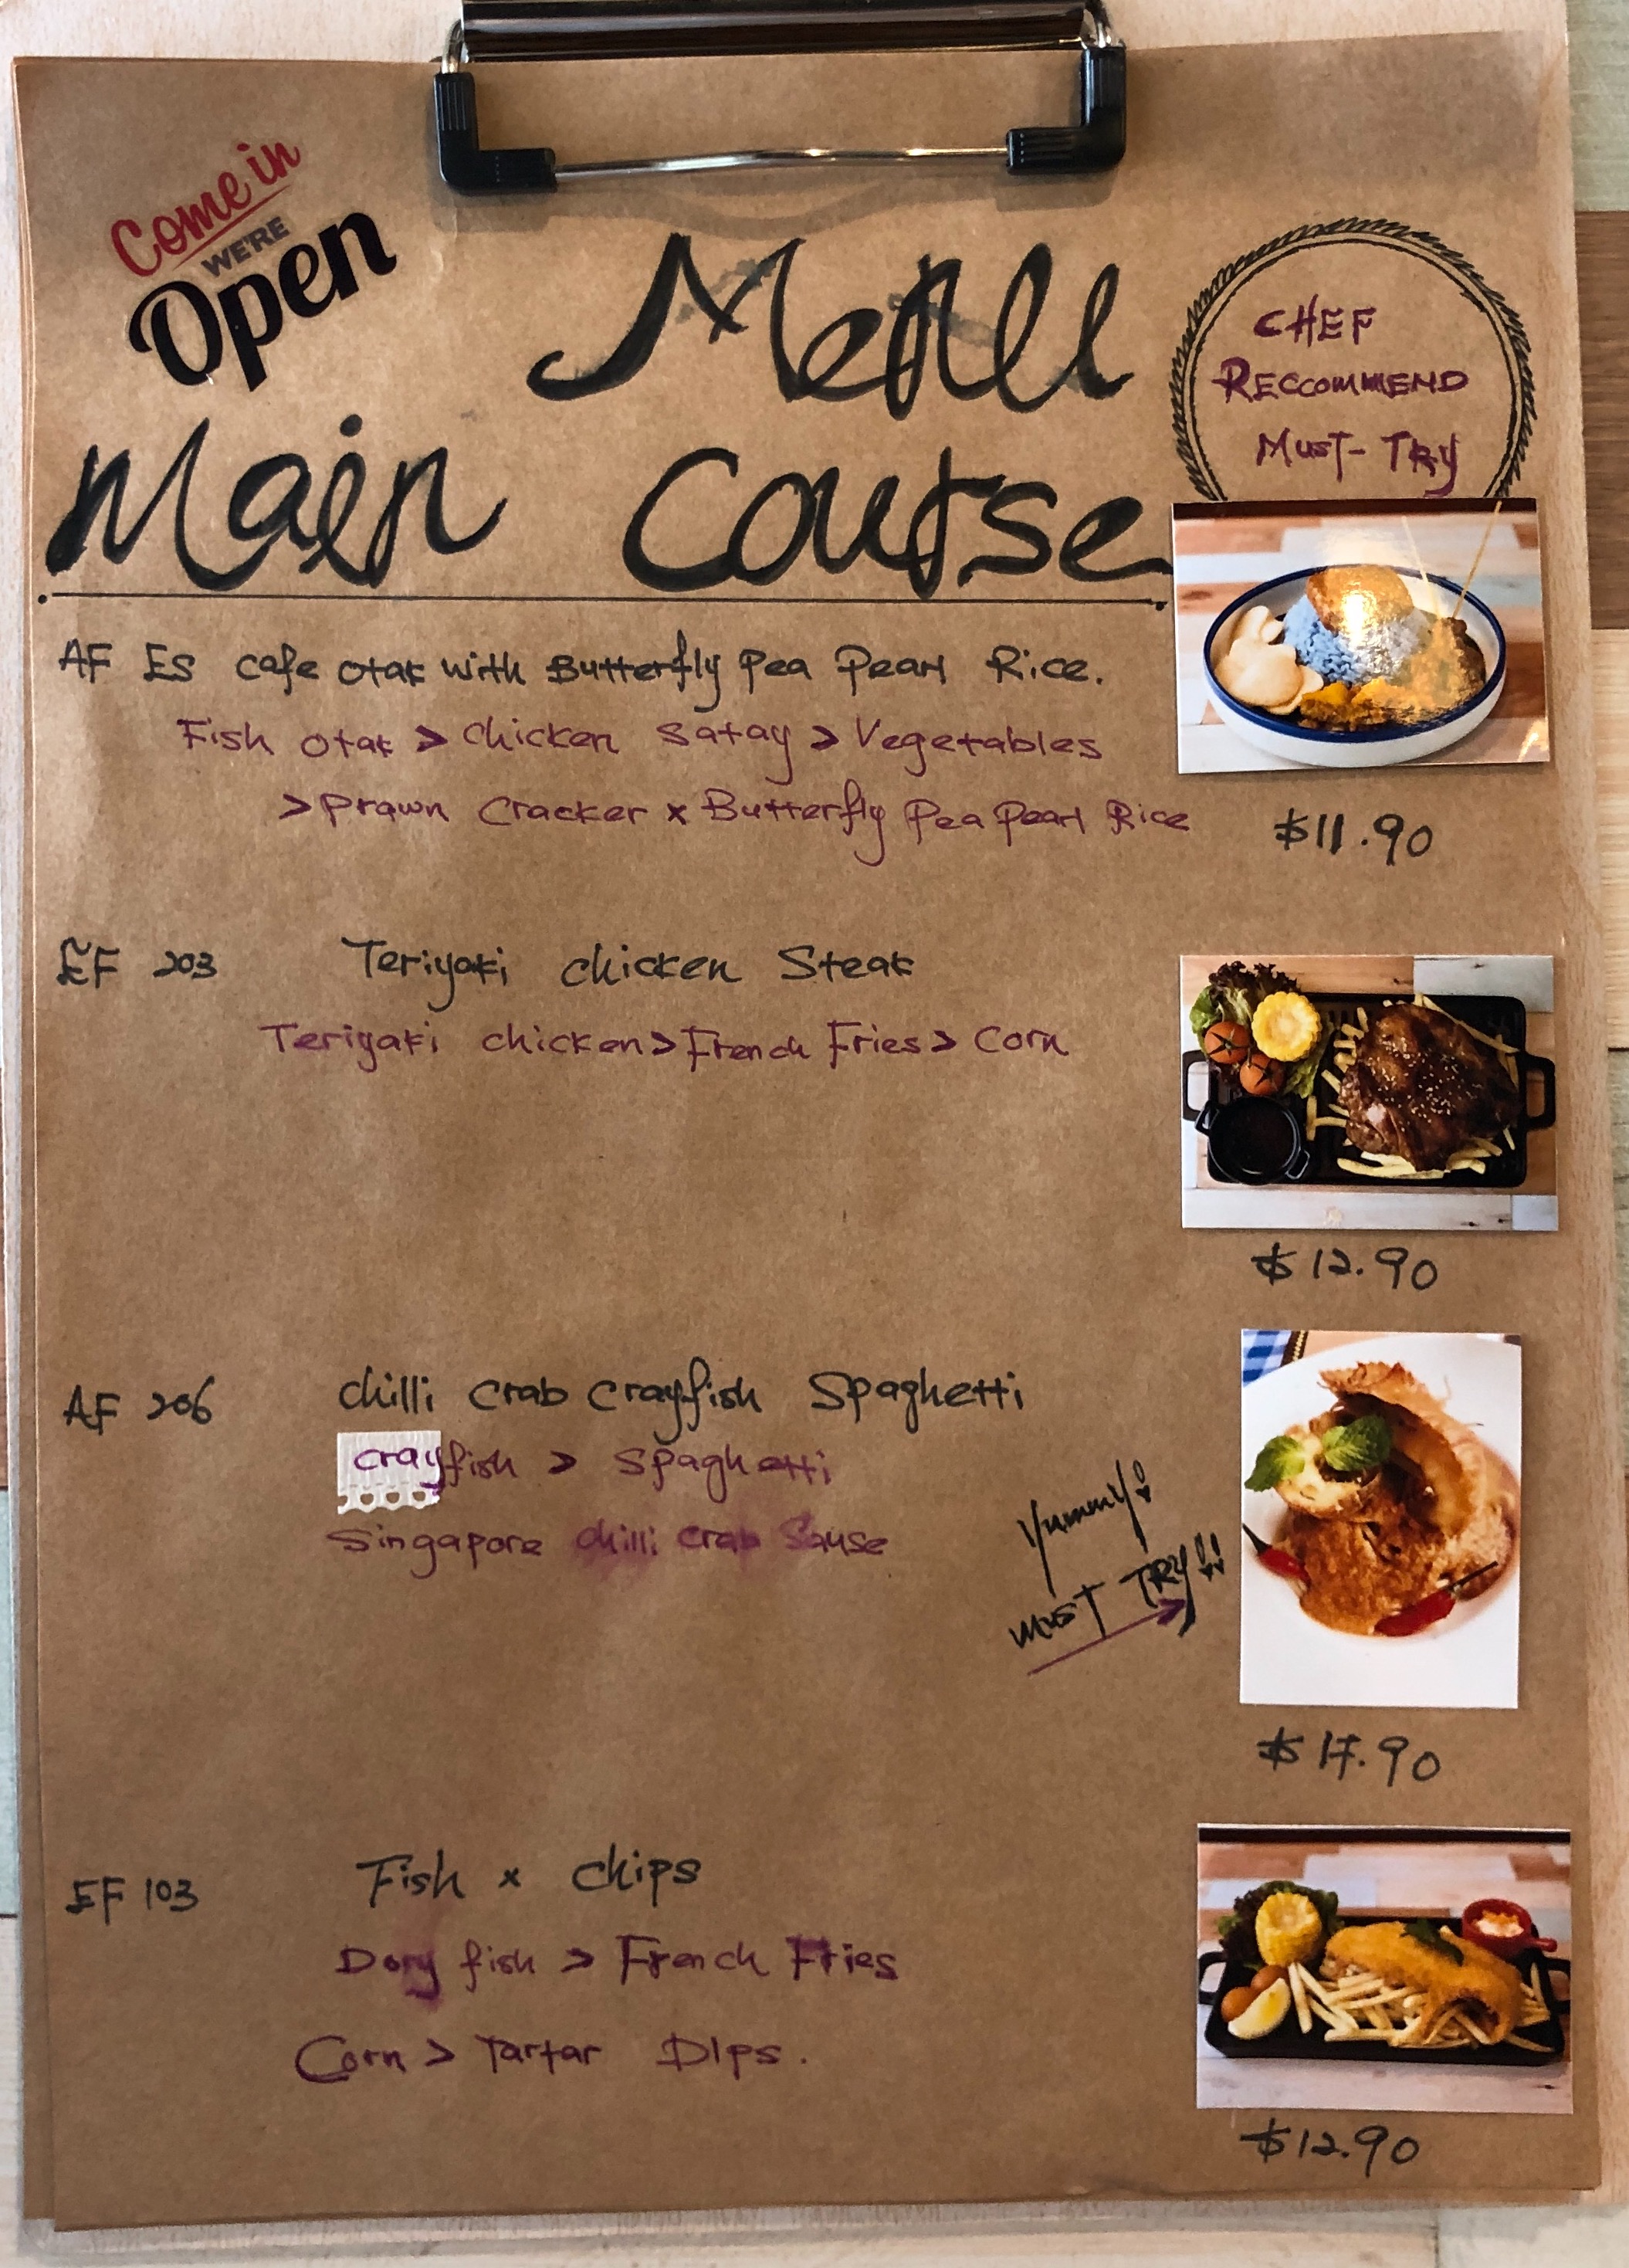 Come in
WE'RE
Open
Menu
CHEF
RECCOMMEND
MUST-TRY
Main Course
AF ES cafe otak with Butterfly Pea Pearl Rice.
Fish otak > chicken satay > Vegetables
> Prawn Cracker x Butterfly Pea Pearl Rice
$11.90
EF 203 Teriyaki chicken Steak
Teriyaki chicken > French Fries > Corn
$12.90
AF 206 chilli crab crayfish Spaghetti
crayfish > Spaghetti
Singapore chilli crab Sause
Yummy!
MUST TRY!!
$17.90
EF 103 Fish x chips
Dory fish > French Fries
Corn > Tartar DIps.
$12.90